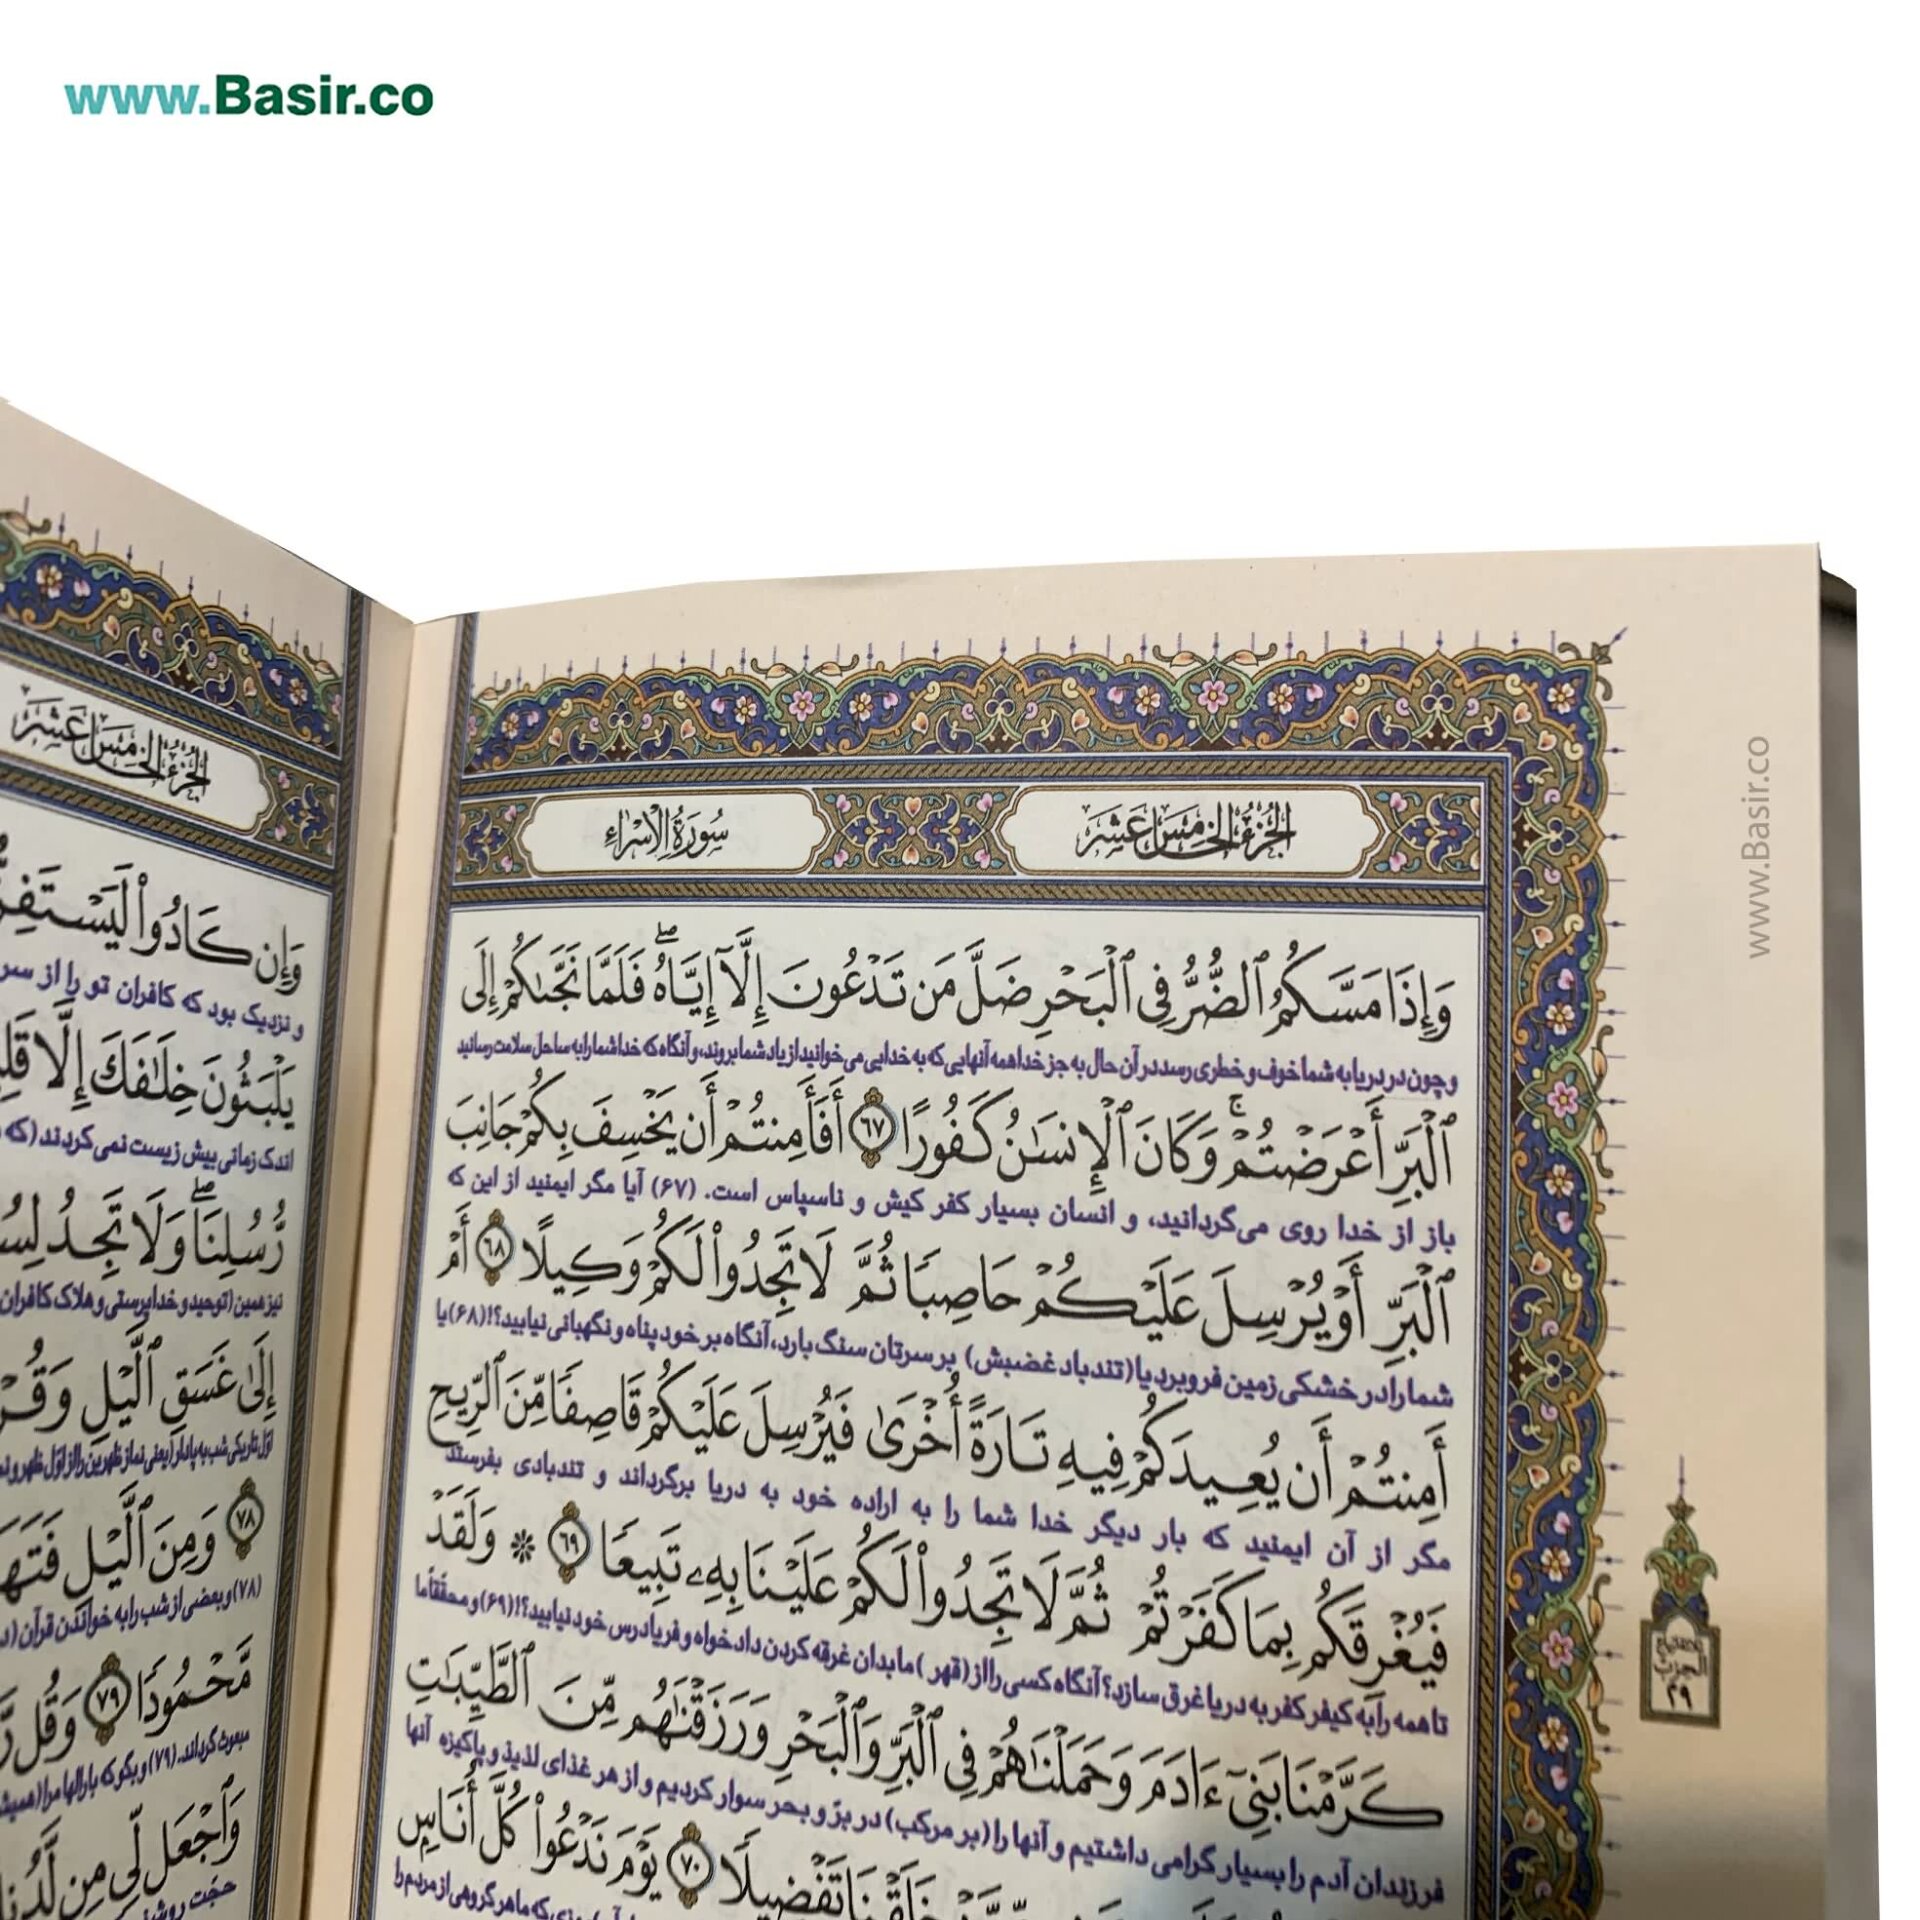 www.Basir.co
الجزء الخامس عشر
سورة الإسراء
وَإِذَا مَسَّكُمُ ٱلضُّرُّ فِي ٱلْبَحْرِ ضَلَّ مَن تَدْعُونَ إِلَّآ إِيَّاهُ ۖ فَلَمَّا نَجَّىٰكُمْ إِلَى
و چون در دریا به شما خوف و خطری رسد در آن حال به جز خدا همه آنهایی که به خدایی می‌خوانید از یاد شما بروند، و آنگاه که خدا شما را به ساحل سلامت رسانید
ٱلْبَرِّ أَعْرَضْتُمْ ۚ وَكَانَ ٱلْإِنسَٰنُ كَفُورًا ۶۷ أَفَأَمِنتُمْ أَن يَخْسِفَ بِكُمْ جَانِبَ
باز از خدا روی می‌گردانید، و انسان بسیار کفر کیش و ناسپاس است. (۶۷) آیا مگر ایمنید از این که
ٱلْبَرِّ أَوْ يُرْسِلَ عَلَيْكُمْ حَاصِبًا ثُمَّ لَا تَجِدُوا۟ لَكُمْ وَكِيلًا ۶۸ أَمْ
شما را در خشکی زمین فرو برد یا (تندباد غضبش) بر سرتان سنگ بارد، آنگاه بر خود پناه و نگهبانی نیابید؟! (۶۸) یا
أَمِنتُمْ أَن يُعِيدَكُمْ فِيهِ تَارَةً أُخْرَىٰ فَيُرْسِلَ عَلَيْكُمْ قَاصِفًا مِّنَ ٱلرِّيحِ
مگر از آن ایمنید که بار دیگر خدا شما را به اراده خود به دریا برگرداند و تندبادی بفرستد
فَيُغْرِقَكُم بِمَا كَفَرْتُمْ ثُمَّ لَا تَجِدُوا۟ لَكُمْ عَلَيْنَا بِهِۦ تَبِيعًا ۶۹ ❊ وَلَقَدْ
تا همه را به کیفر کفر به دریا غرق سازد؟ آنگاه کسی را از (قهر) ما بدان غرقه کردن دادخواه و فریادرس خود نیابید؟! (۶۹) و محققاً ما
كَرَّمْنَا بَنِىٓ ءَادَمَ وَحَمَلْنَٰهُمْ فِي ٱلْبَرِّ وَٱلْبَحْرِ وَرَزَقْنَٰهُم مِّنَ ٱلطَّيِّبَٰتِ
فرزندان آدم را بسیار گرامی داشتیم و آنها را (بر مرکب) در بر و بحر سوار کردیم و از هر غذای لذیذ و پاکیزه آنها
خَلَقْنَا تَفْضِيلًا ۷۰ يَوْمَ نَدْعُوا۟ كُلَّ أُنَاسٍ
که ما هر گروهی از مردم را
الحزب
۲۹
www.Basir.co
الجزء الخامس عشر
وَإِن كَادُوا۟ لَيَسْتَفِزُّ
و نزدیک بود که کافران تو را از سر
يَلْبَثُونَ خِلَٰفَكَ إِلَّا
اندک زمانی بیش زیست نمی‌کردند (که
رُّسُلِنَا ۖ وَلَا تَجِدُ
نیز همین (توحید و خداپرستی و هلاک کافران
إِلَىٰ غَسَقِ ٱلَّيْلِ وَ
اول تاریکی شب به پا دار (یعنی نماز ظهرین را از اول ظهر و
۷۸ وَمِنَ ٱلَّيْلِ
(۷۸) و بعضی از شب را به خواندن قرآن
مَّحْمُودًا ۷۹ وَقُل
مبعوث گرداند. (۷۹) و بگو که بارالها مرا
وَٱجْعَل لِّى مِن
حجت